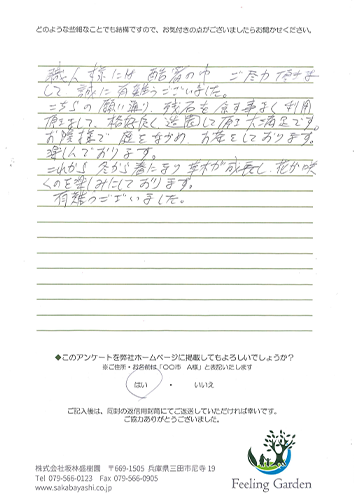 どのような些細なことでも結構ですので、お気付きの点がございましたらお聞かせください。
職人様には 酷暑の中 ご尽力頂きま
して 誠に有難うございました。
こちらの願い通り、残石を 余す事なく利用
頂きまして、格好よく 造園して頂き 大満足です。
お陰様で 庭をながめ お茶をしております。
楽しんでおります。
これから 冬から春になり 草木が成長し、花が咲
くのを楽しみにしております。
有難うございました。
◆このアンケートを弊社ホームページに掲載してもよろしいでしょうか?
※ご住所・お名前は「〇〇市 A様」と表記いたします
はい ・ いいえ
ご記入後は、同封の返信用封筒にてご返送していただければ幸いです。
ご協力ありがとうございました。
株式会社坂林盛樹園 〒669-1505 兵庫県三田市尼寺 19
Tel 079-566-0123 Fax 079-566-0905
www.sakabayashi.co.jp
Feeling Garden